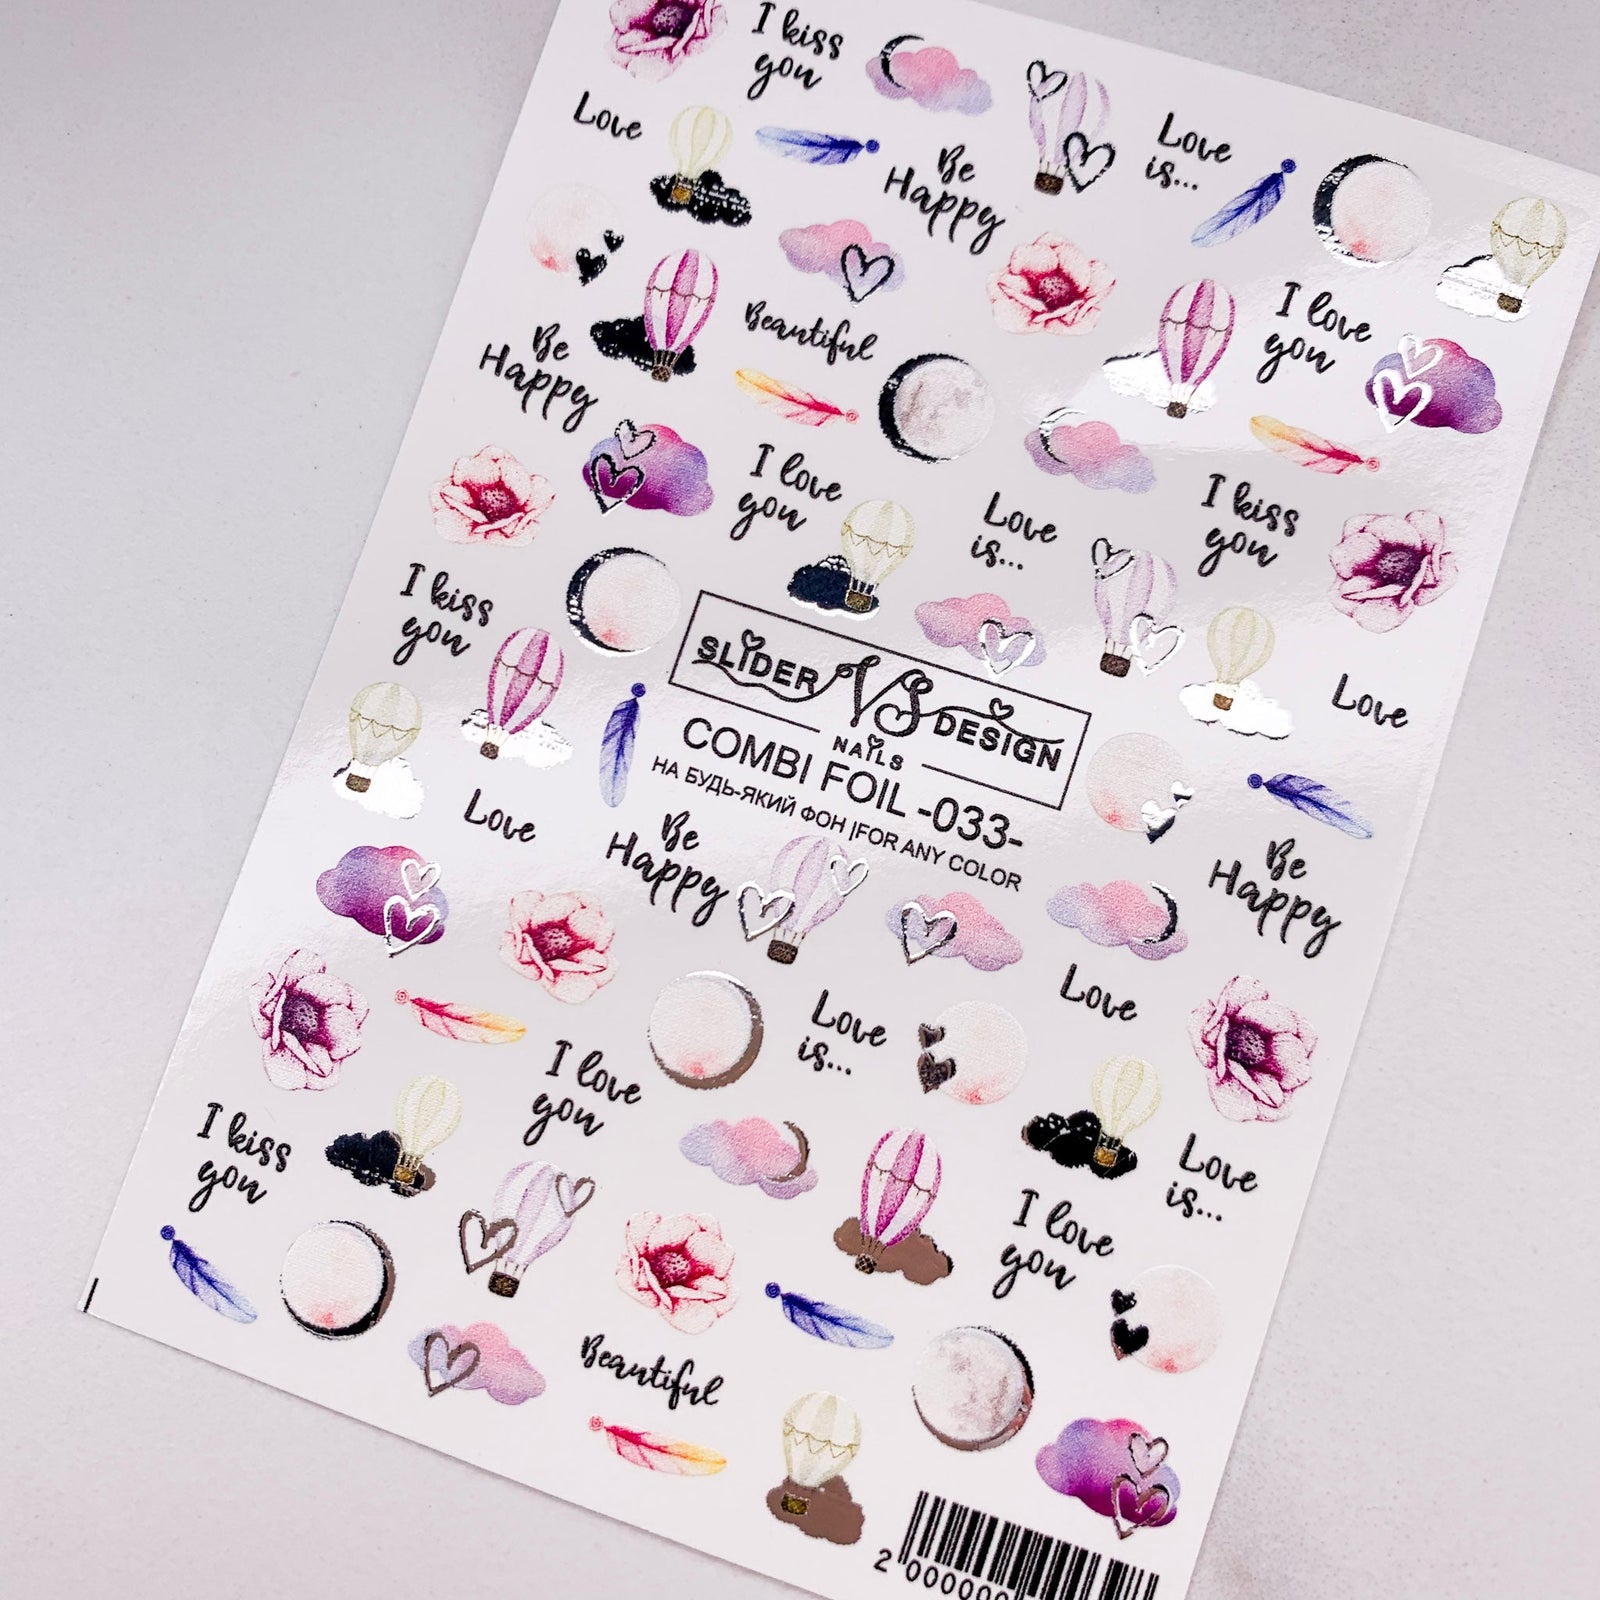 I kiss
you
Love
Be
Happy
Love
is...
Beautiful
I love
you
Be
Happy
I love
you
Love
is...
I kiss
you
I kiss
you
Love
SLIDER VS DESIGN
NAILS
COMBI FOIL -033-
НА БУДЬ-ЯКИЙ ФОН |FOR ANY COLOR
Love
Be
Happy
Be
Happy
Love
Love
is...
I love
you
I kiss
you
Love
is...
I love
you
Beautiful
2 000000